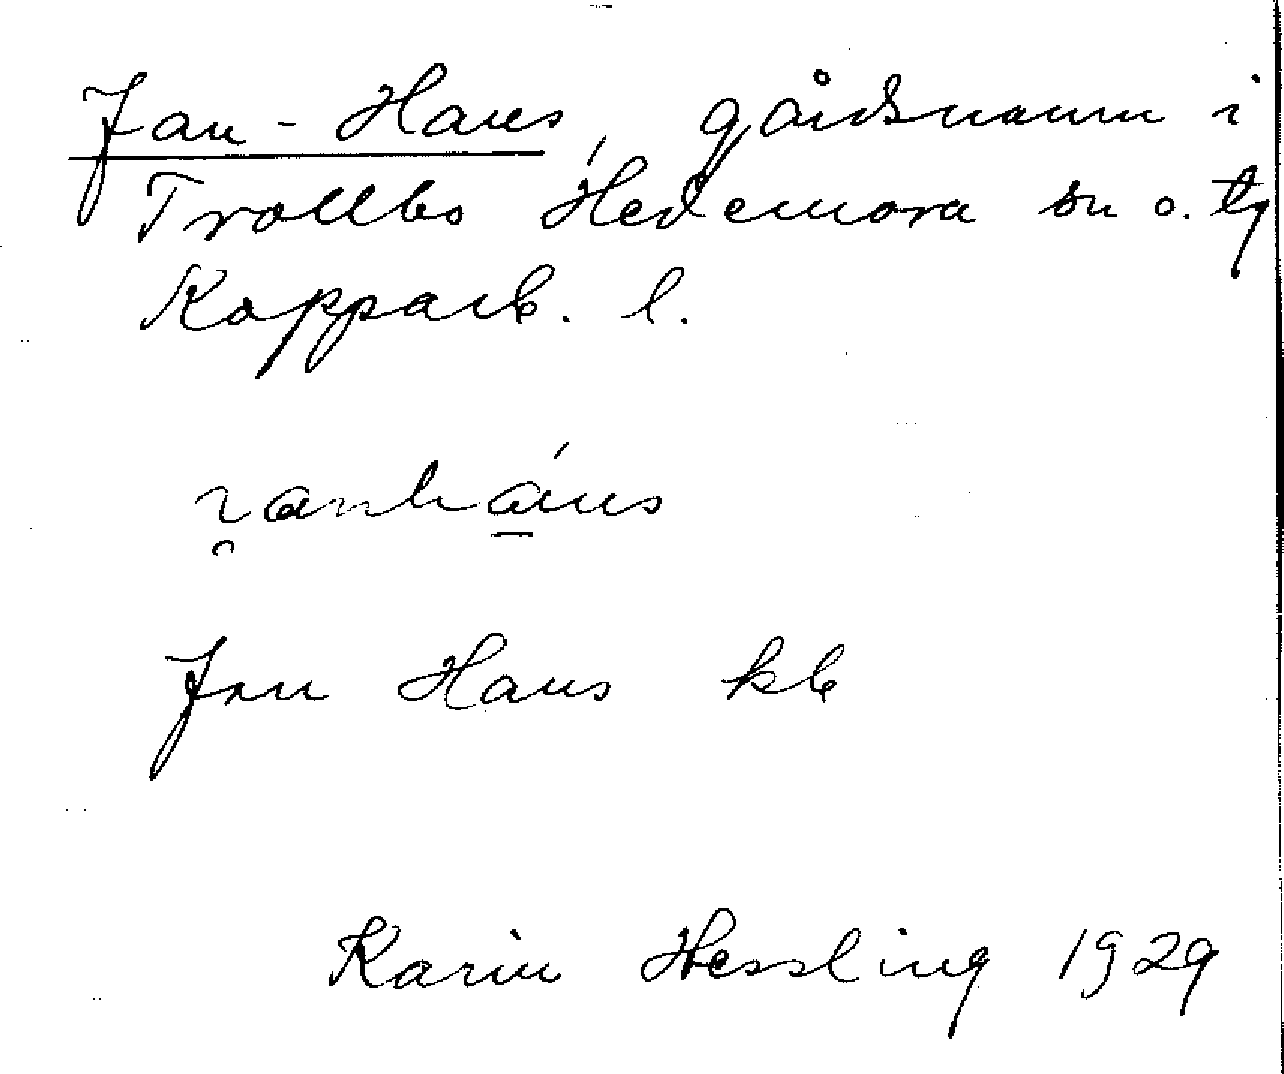 Jan-Hans, gårdsnamn i
Trollbo Hedemora sn o. tg
Kopparb. l.
Jan Hans kb
Karin Hessling 1929